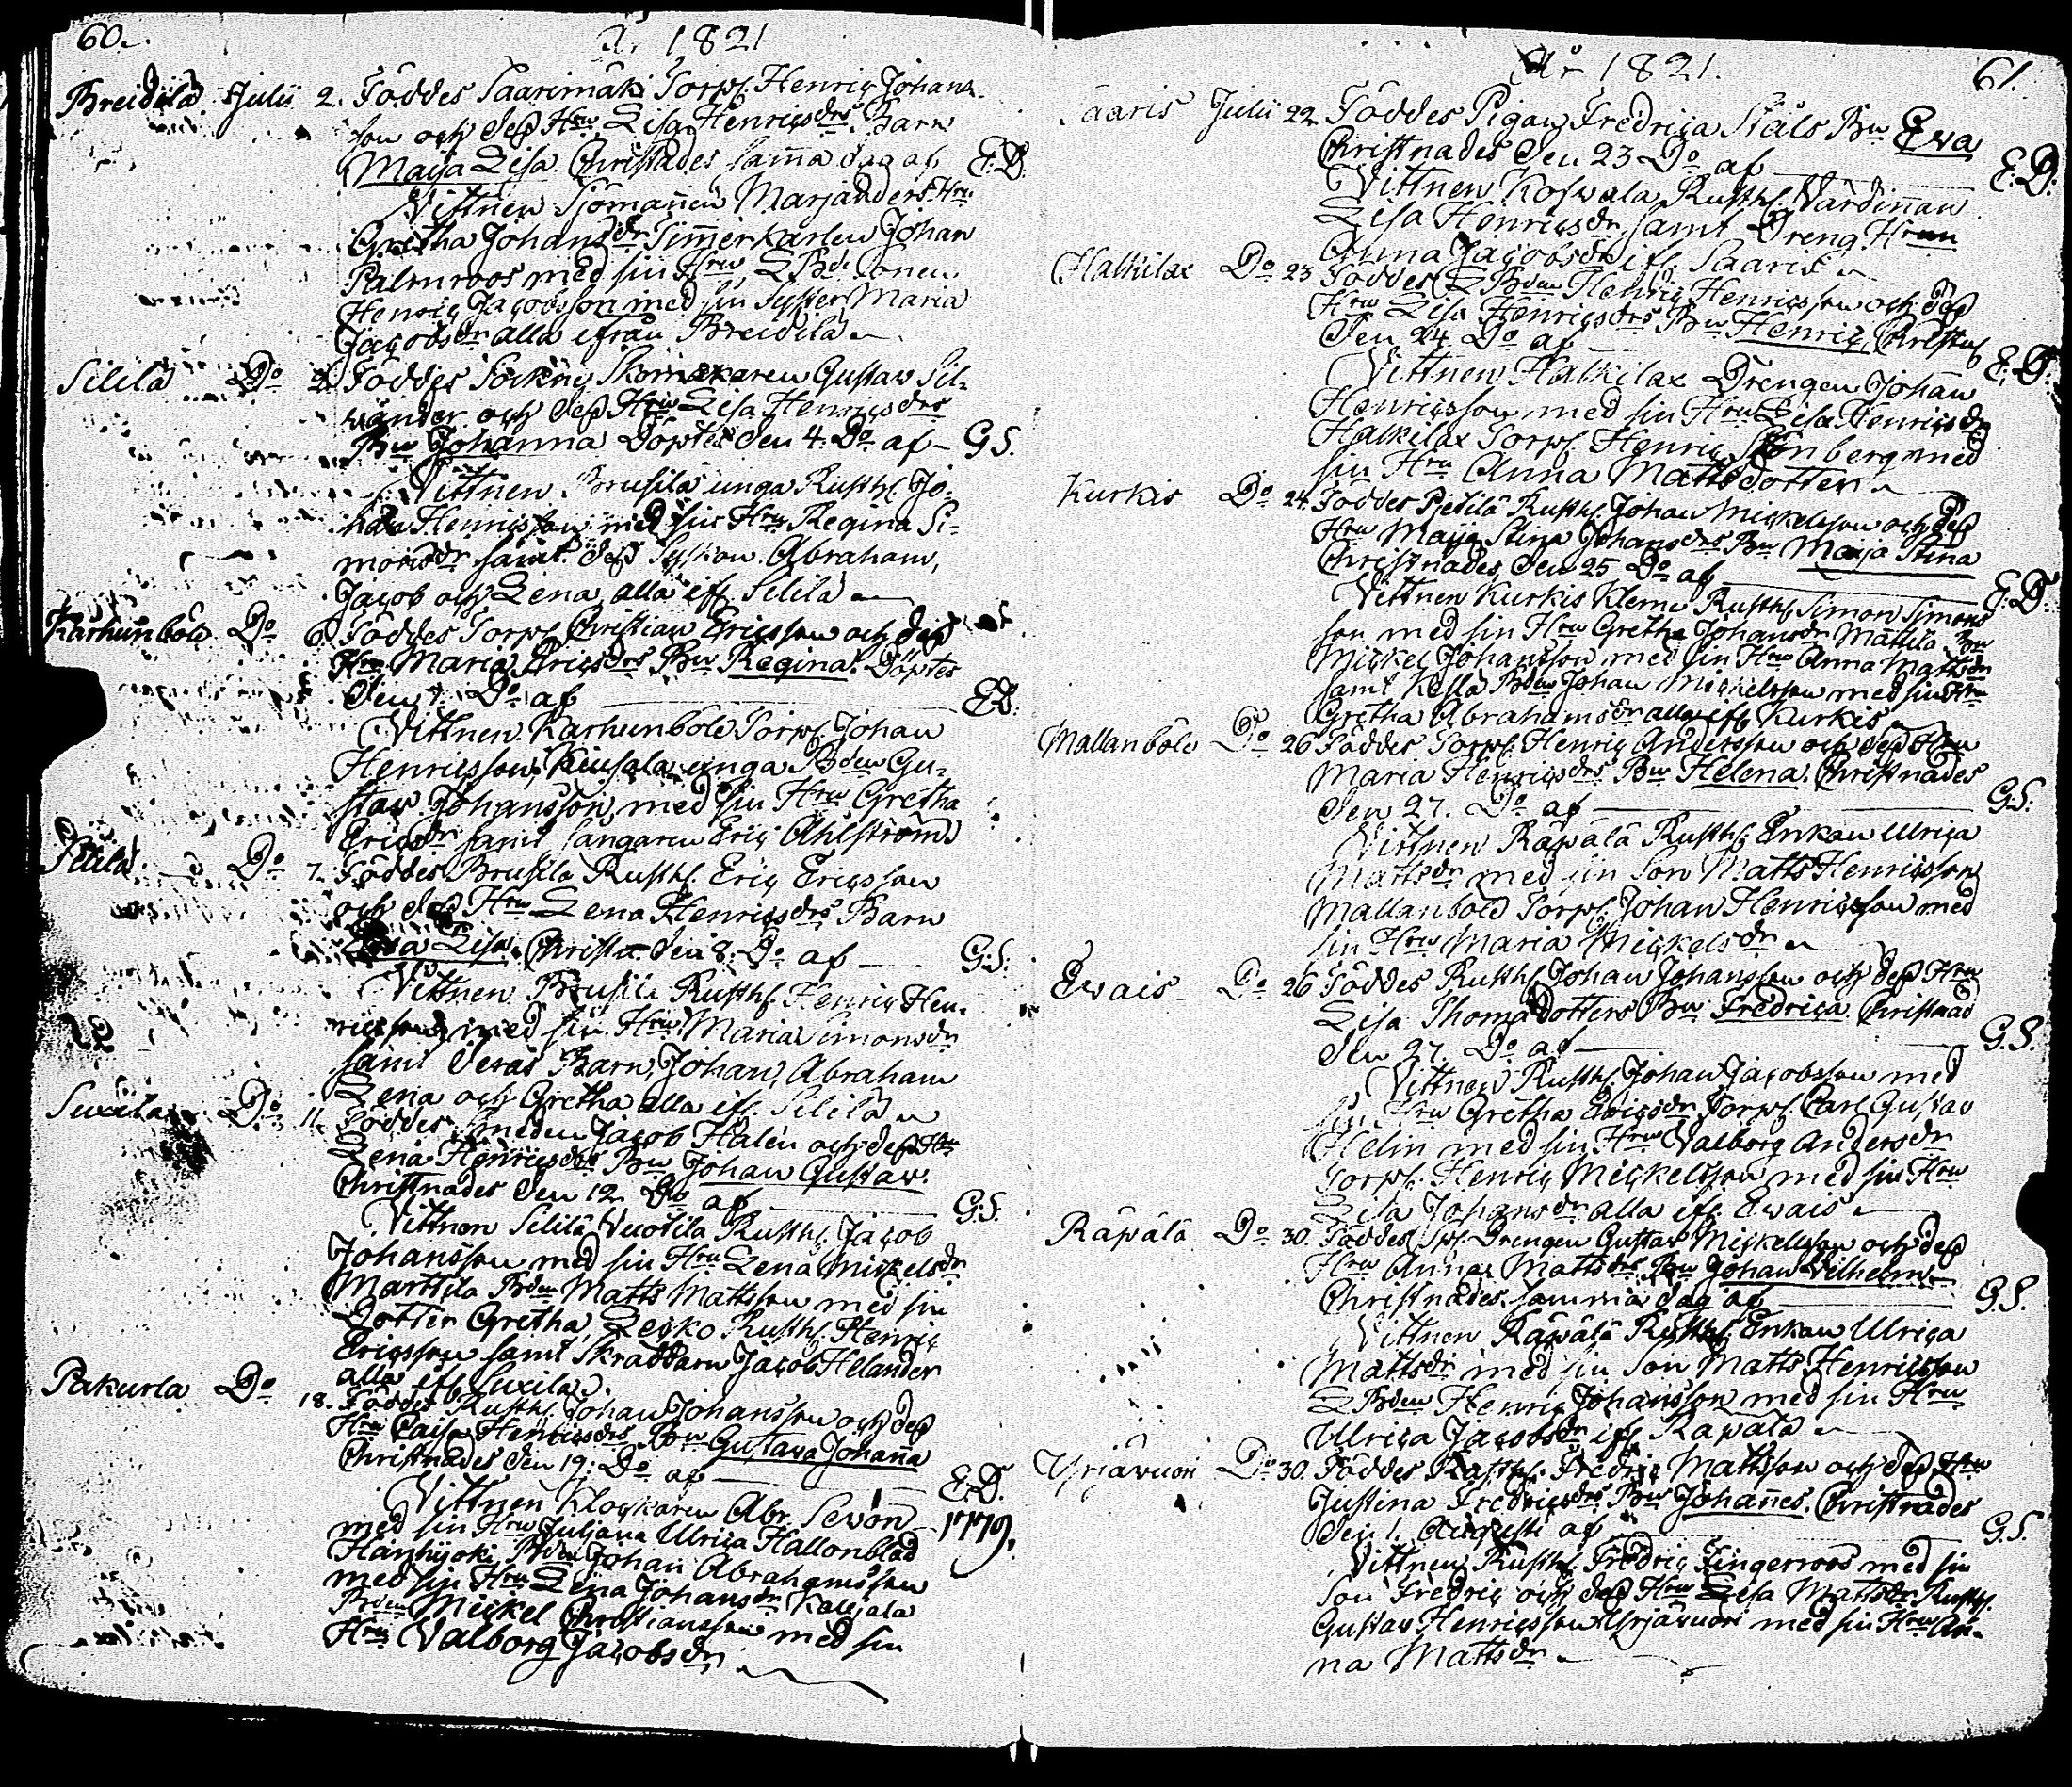 60.
År 1821
Breidilä Julii 2. Föddes Saarimäki Torp. Henric Johans-
son och deß Hru Lisa Henricsdrs Barn
Maija Lisa Christnades sama dag af E:D:
Vittnen Sjömannen Marjanders Hru
Gretha Johansdr Timmerkarlen Johan
Palmroos med sin Hru, Bde Sonen
Henric Jacobsson med sin Syster Maria
Jacobsdr alla ifrån Breidilä
Sililä Do 2. Föddes Sockne Skomakaren Gustav Sil-
vander och deß Hru Lisa Henricsdrs
Bn Johanna Döptes den 4. Do af G.S.
Vittnen Brusila unga Rusth. Jo-
han Henricsson med sin Hru Regina Si-
monsdr samt deß Syskon Abraham,
Jacob och Lena, alla ifr. Sililä
Karhunbole Do 6. Föddes Torp. Christian Ericsson och deß
Hru Maria Ericsdrs Bn Regina. Döptes
den 7. Do af E:D:
Vittnen Karhunbole Torp. Johan
Henricsson, unga Bden Gu-
stav Johansson, med sin Hru Gretha
Ericsdr samt Sångaren Eric Ahlström
Sililä Do 7. Föddes Brusila Rusth. Eric Ericsson
och deß Hru Lena Henricsdrs Barn
Lisa. Christn den 8. Do af G:S:
Vittnen Brusila Rusth. Henric Hen-
ricsson med sin Hru Maria Simonsdr
samt deras Barn, Johan, Abraham
Lena och Gretha alla ifr. Sililä
Suxila Do 11. Föddes Smeden Jacob Halen och deß Hru
Lena Henricsdrs Bn Johan Gustav.
Christnades den 12. Do af G:S:
Vittnen Sililä Vuotila Rusth. Jacob
Johansson med sin Hru Lena Mickelsdr
Marttila Bden Matts Mattsson med sin
Dotter Gretha, Lecko Rusth. Henric
Ericsson samt Skräddaren Jacob Helander
alla ifr Suxila.
Pakurla Do 18. Föddes Rusth. Johan Johansson och deß
Hru Caisa Henricsdrs Bn Gustava Johanna
Christnades den 19. Do af E:D.
Vittnen Klockaren Abr. Sevon 1779.
med sin Hru Juliana Ulrica Hallonblad
Hanhijoki Bden Johan Abrahamsson
med sin Hru Lena Johansdr Kalljala
Bden Mickel Christiansson med sin
Hru Valborg Jacobsdr
År 1821. 61.
Saaris Julii 22. Föddes Pigan Fredrica Ståls Bn Eva
Christnades den 23 Do af E:D:
Vittnen Koswala Rusth. Värdinnan
Lisa Henricsdr samt Dreng Hrun
Anna Jacobsdr ifr. Saaris
Halkilax Do 23 Föddes Bden Henric Henricsson och deß
Hru Lisa Henricsdrs Bn Henric, Christns
den 24 Do af E:D:
Vittnen Halkilax Drengen Johan
Henricsson med sin Hru Lisa Henricsdr
Halkilax Torp. Henric Stenberg med
sin Hru Anna Mattsdotter
Kurkis Do 24. Föddes Pietilä Rusth. Johan Mickelsson och deß
Hru Maija Stina Johansdrs Bn Maija Stina
Christnades den 25 Do af E:D:
Vittnen Kurkis Klemi Rusth. Simon Simons
son med sin Hru Gretha Johansdr Mattila Bn
Mickel Johansson med sin Hru Anna Mattsdr
samt Kesla Bden Johan Mickelsson med sin Hru
Gretha Abrahamsdr alla ifr. Kurkis
Mallanbole Do 26 Föddes Torp. Henric Andersson och deß Hru
Maria Henricsdrs Bn Helena. Christnades
den 27. Do af G:S:
Vittnen Räpälä Rusth. Enkan Ulrica
Mattsdr med sin Son Matts Henricsson
Mallanbole Torp. Johan Henricsson med
sin Hru Maria Mickelsdr
Evais Do 26 Föddes Rusth. Johan Johansson och deß Hru
Lisa Thomadotters Bn Fredrica. Christnad
den 27. Do af G.S.
Vittnen Rusth. Johan Jacobsson med
sin Hru Gretha Ericsdr, Torp. Carl Gustav
Helin med sin Hru Valborg Andersdr
Torp. Henric Mickelsson med sin Hru
Lisa Johansdr alla ifr Evais
Räpälä Do 30. Föddes Drengen Gustav Mickelsson och deß
Hru Anna Mattsdrs Bn Johan Vilhelm
Christnades samma dag af G.S.
Vittnen Räpälä Rusth. Enkan Ulrica
Mattsdr med sin Son Matts Henricsson
Bden Henric Johansson med sin Hru
Ulrica Jacobsdr ifr Räpälä
Yrjävuori Do 30. Föddes Rusth. Fredric Mattsson och deß Hru
Justina Fredricsdrs Bn Johannes Christnades
den 1. Augusti af G.S.
Vittnen Rusth. Fredric Fingerroos med sin
Son Fredric och deß Hru Lisa Mattsdr Rusth.
Gustav Henricsson Yrjävuori med sin Hru An-
na Mattsdr